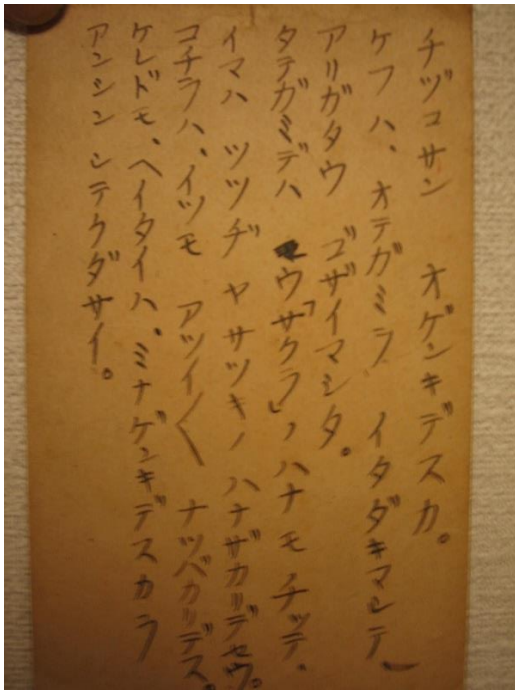 チヅコサン オゲンキデスカ。
ケフハ、オテガミヲ イタダキマシテ、
アリガタウ ゴザイマシタ。
タテガミデハ ウ「サクラ」ノハナモチッテ、
イマハ ツツヂ ヤサツキノ ハナザカリデセウ。
コチラハ、イツモ アツイ〱 ナツバカリデス。
ケレドモ、ヘイタイハ、ミナゲンキデスカラ
アンシン シテクダサイ。